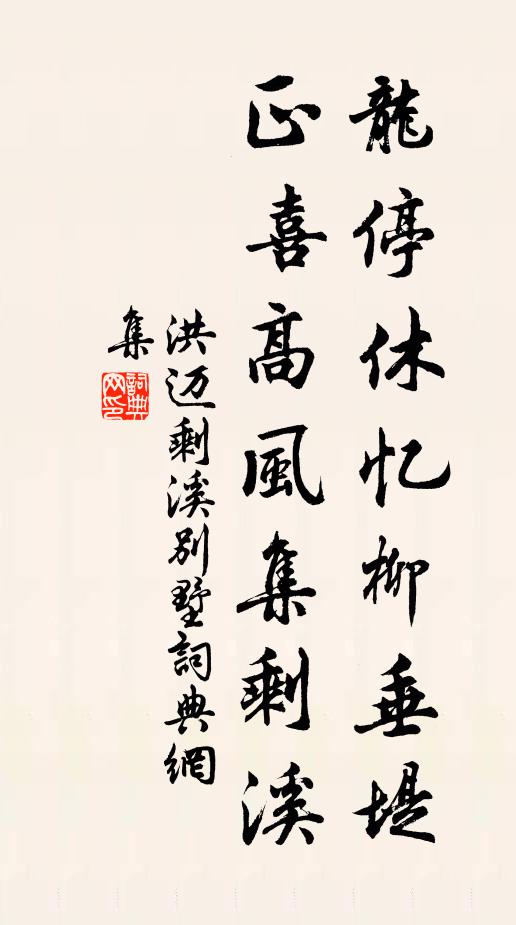 龍停休忆柳垂堤
正喜高風集剩溪
洪迈剩溪别墅詞典網
集
詞典
网印